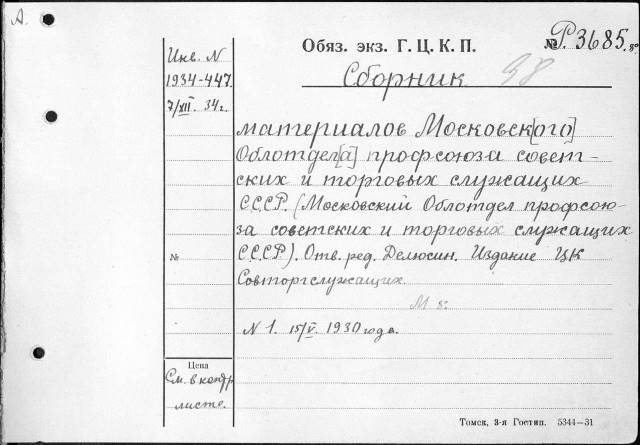 А.
Инв. N
1934-447.
7/XII. 34г.
№
Цена
См. в контр
листе.
Обяз. экз. Г. Ц. К. П.
№ Р3685.
Сборник 98
материалов Московск[ого]
Облотдел[а] профсоюза совет-
ских и торговых служащих
СССР. (Московский Облотдел профсою-
за советских и торговых служащих
СССР). Отв. ред. Делюсин. Издание ЦК
Совторгслужащих.
М
N 1. 15/V. 1930 года.
Томск, 3-я Гостип. 5344—31